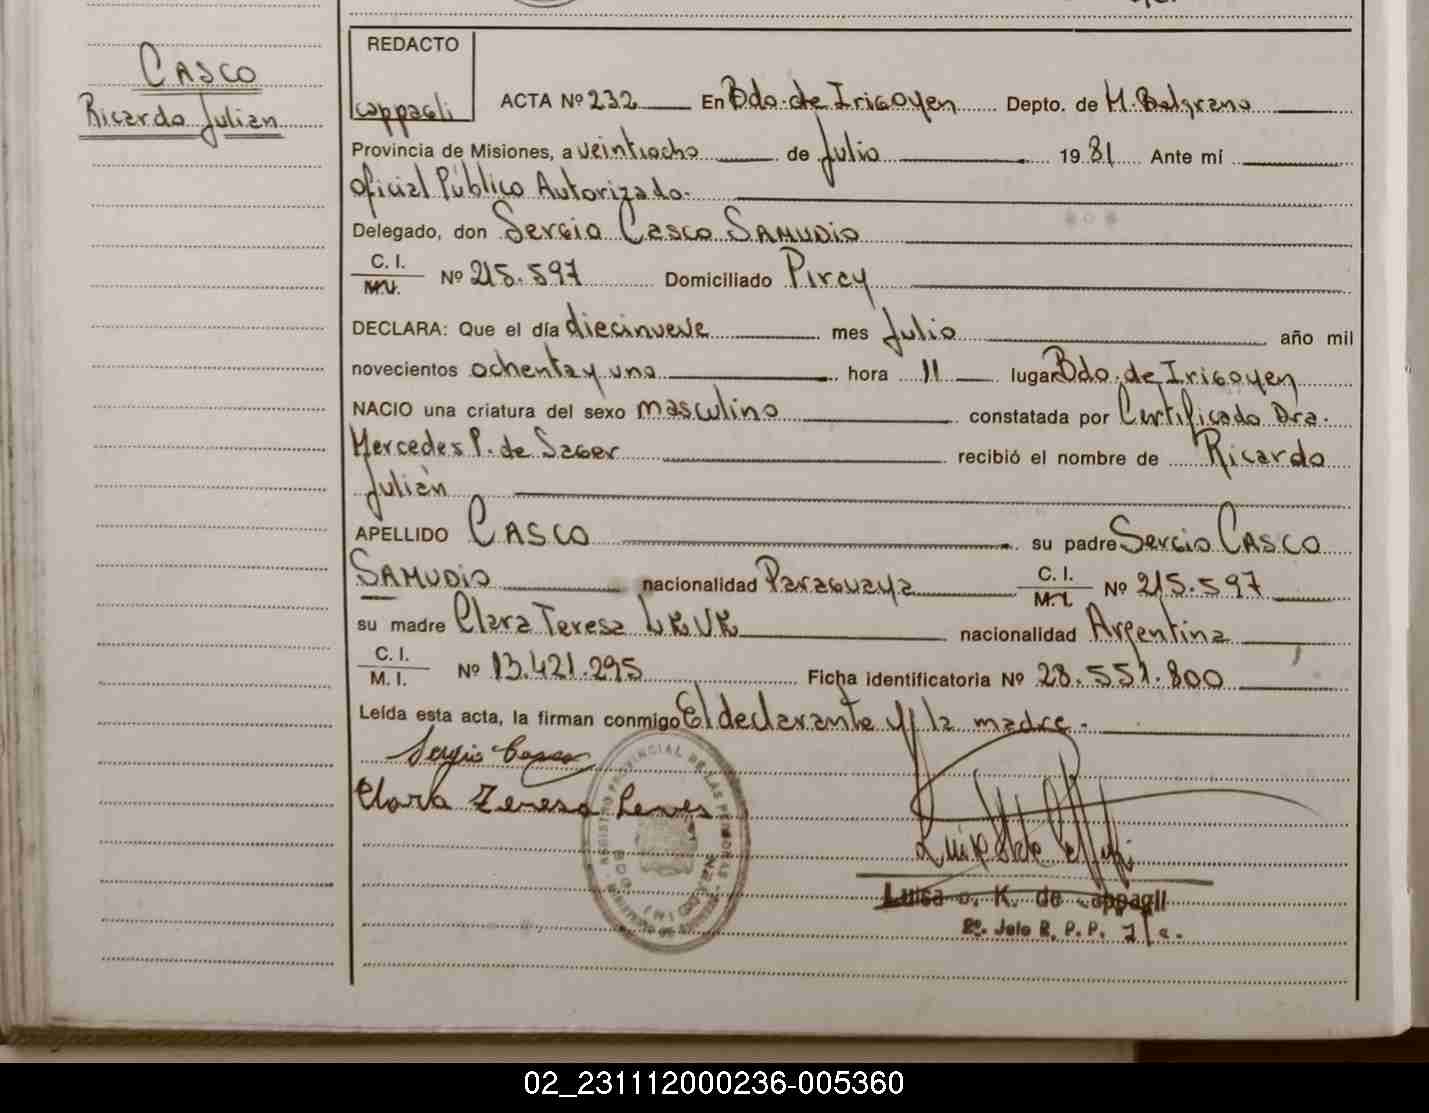 CASCO
Ricardo Julian
REDACTO
cappagli
ACTA Nº 232 En Bdo. de Irigoyen Depto. de M. Belgrano
Provincia de Misiones, a veintiocho de Julio 1981 Ante mí
oficial Público Autorizado.
Delegado, don Sergio Casco SAMUDIO
C. I.
M.I. Nº 215.597 Domiciliado Piray
DECLARA: Que el día diecinueve mes Julio año mil
novecientos ochenta y uno hora 11 lugar Bdo. de Irigoyen
NACIO una criatura del sexo masculino constatada por Certificado Dra.
Mercedes P. de Sager recibió el nombre de Ricardo
Julián
APELLIDO CASCO su padre Sergio CASCO
SAMUDIO nacionalidad Paraguaya C. I.
M.I. Nº 215.597
su madre Clara Teresa nacionalidad Argentina
C. I.
M. I. Nº 13.421.295 Ficha identificatoria Nº 28.551.800
Leída esta acta, la firman conmigo El declarante y la madre.
Sergio Casco
Clara Teresa
REGISTRO PROVINCIAL DE LAS PERSONAS
Luisa K. de Cappagli
R. P. P.
02_231112000236-005360